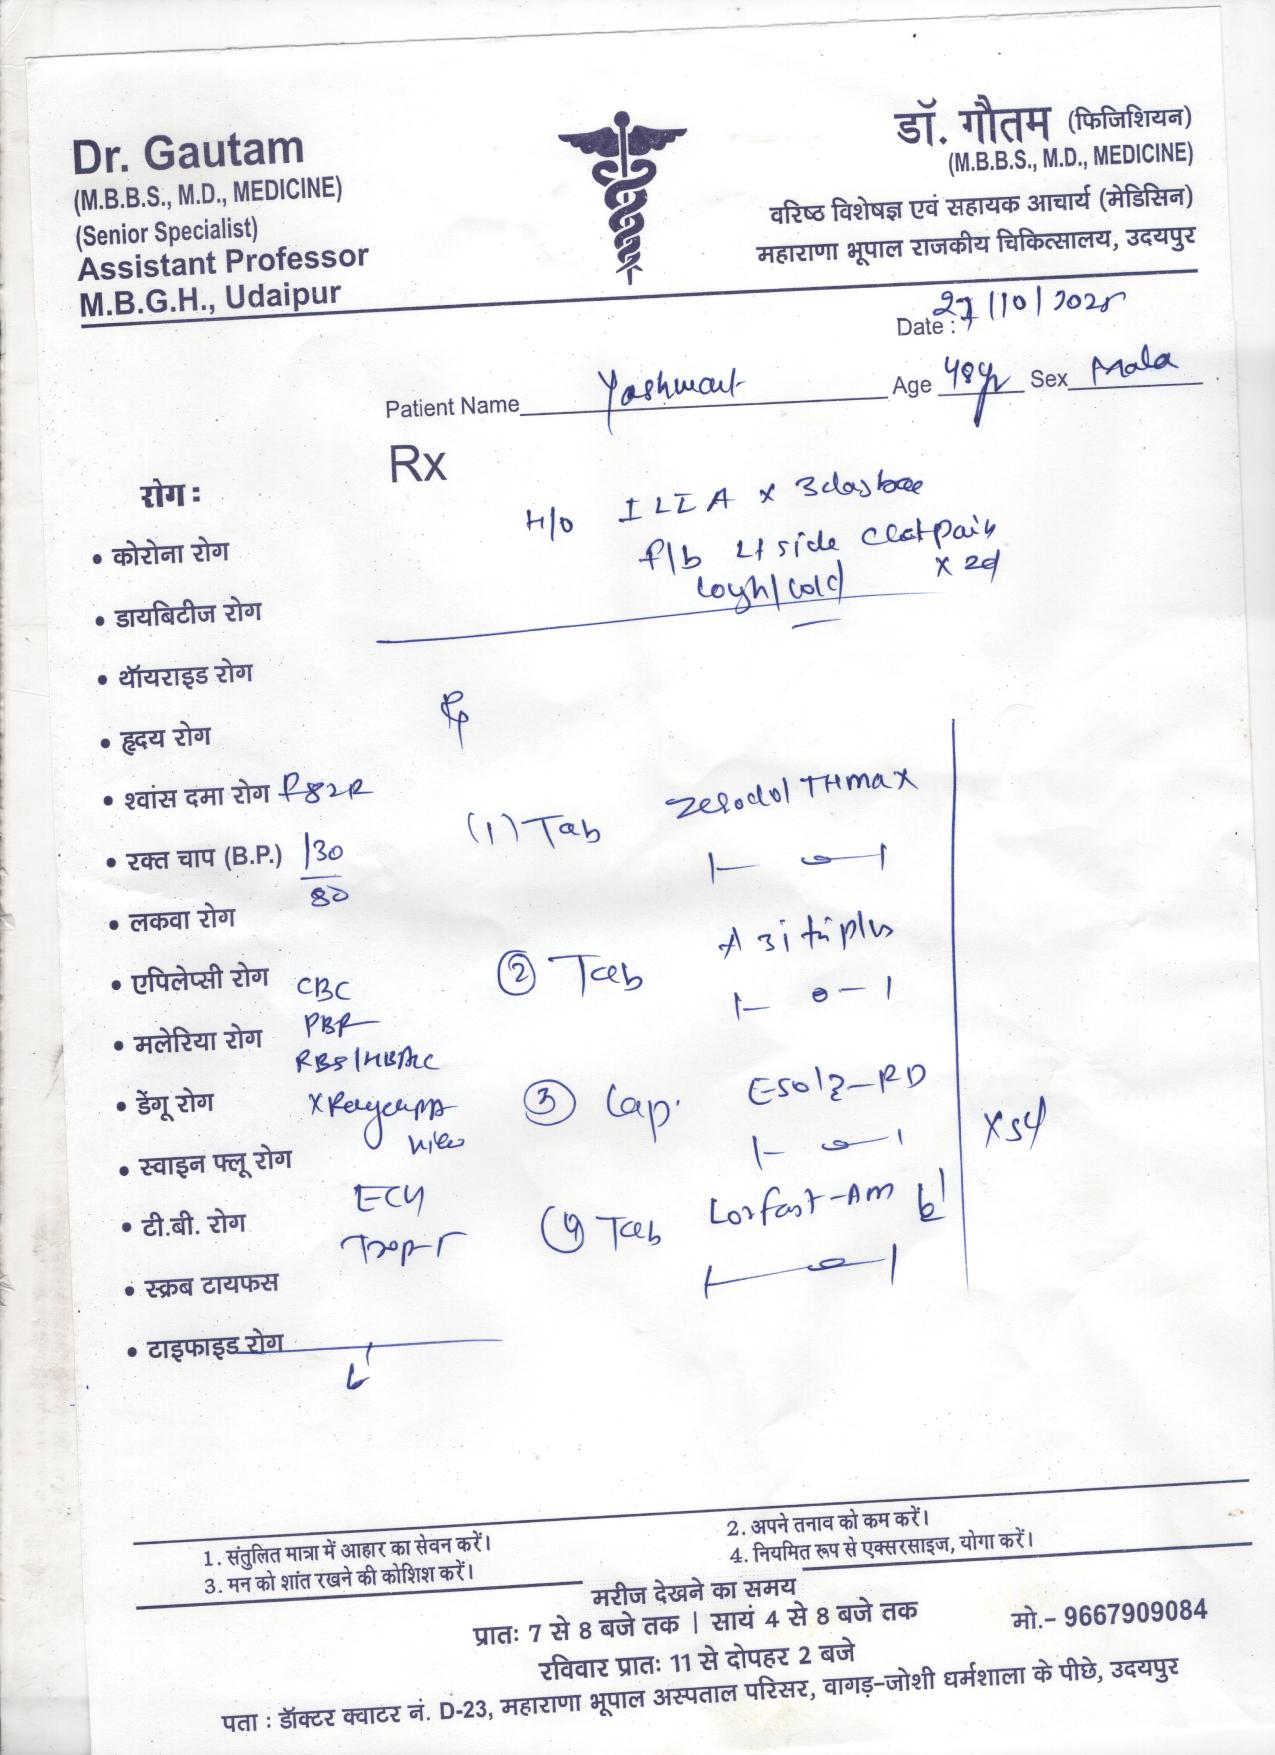 Dr. Gautam
(M.B.B.S., M.D., MEDICINE)
(Senior Specialist)
Assistant Professor
M.B.G.H., Udaipur
डॉ. गौतम (फिजिशियन)
(M.B.B.S., M.D., MEDICINE)
वरिष्ठ विशेषज्ञ एवं सहायक आचार्य (मेडिसिन)
महाराणा भूपाल राजकीय चिकित्सालय, उदयपुर
Date : 27/10/2025
Patient Name Yashwant Age 48y Sex Male
Rx
H/O ILIA x 3days back
f/b Lt side Chest pain
x 2d
Cough/Cold
रोग :
• कोरोना रोग
• डायबिटीज रोग
• थॉयराइड रोग
• हृदय रोग
• श्वांस दमा रोग P82R
• रक्त चाप (B.P.) 130
80
• लकवा रोग
• एपिलेप्सी रोग CBC
PBF
• मलेरिया रोग RBS/HBA1C
• डेंगू रोग X Ray
• स्वाइन फ्लू रोग
ECG
• टी.बी. रोग Trop-T
• स्क्रब टायफस
• टाइफाइड रोग
(1) Tab Zerodol THmax
② Tab A3itriplus
③ Cap. Esolz-RD
④ Tab Lorfast-AM
x 5d
1. संतुलित मात्रा में आहार का सेवन करें।
2. अपने तनाव को कम करें।
3. मन को शांत रखने की कोशिश करें।
4. नियमित रूप से एक्सरसाइज, योगा करें।
मरीज देखने का समय
प्रातः 7 से 8 बजे तक | सायं 4 से 8 बजे तक
मो.- 9667909084
रविवार प्रातः 11 से दोपहर 2 बजे
पता : डॉक्टर क्वाटर नं. D-23, महाराणा भूपाल अस्पताल परिसर, वागड़-जोशी धर्मशाला के पीछे, उदयपुर